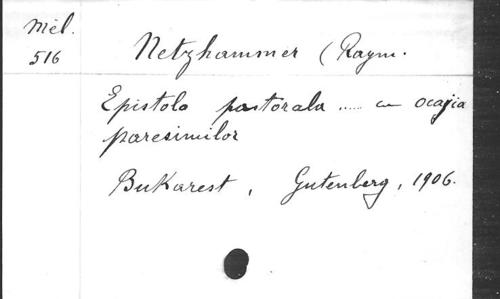 Mél.
516
Netzhammer (Raym.
Epistola pastorala ..... cu ocazia
paresimilor
Bukarest, Gutenberg, 1906.